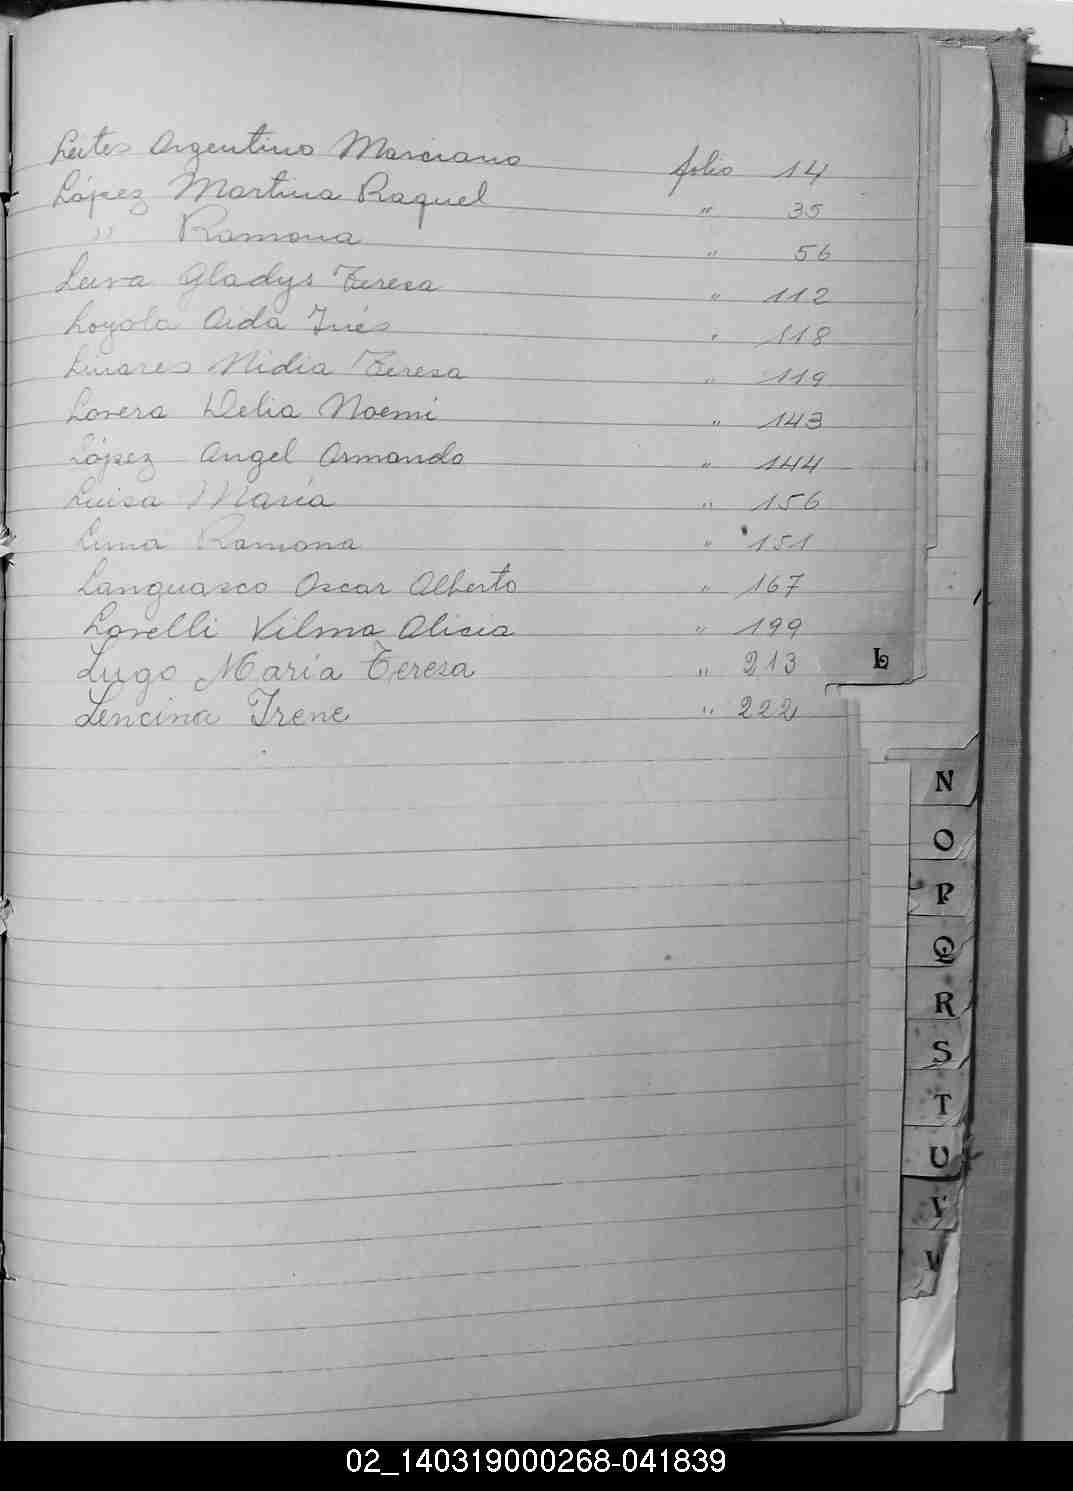 Leites Argentino Marciano folio 14
López Martina Raquel " 35
" Ramona " 56
Leiva Gladys Teresa " 112
Loyola Aida Inés " 118
Linares Nidia Teresa " 119
Lovera Delia Noemi " 143
López Angel Armando " 144
Luisa María " 156
Luna Ramona " 151
Languasco Oscar Alberto " 167
Lovelli Vilma Alicia " 199
Lugo María Teresa " 213
Lencina Irene " 222
L
N
O
P
Q
R
S
T
U
V
02_140319000268-041839